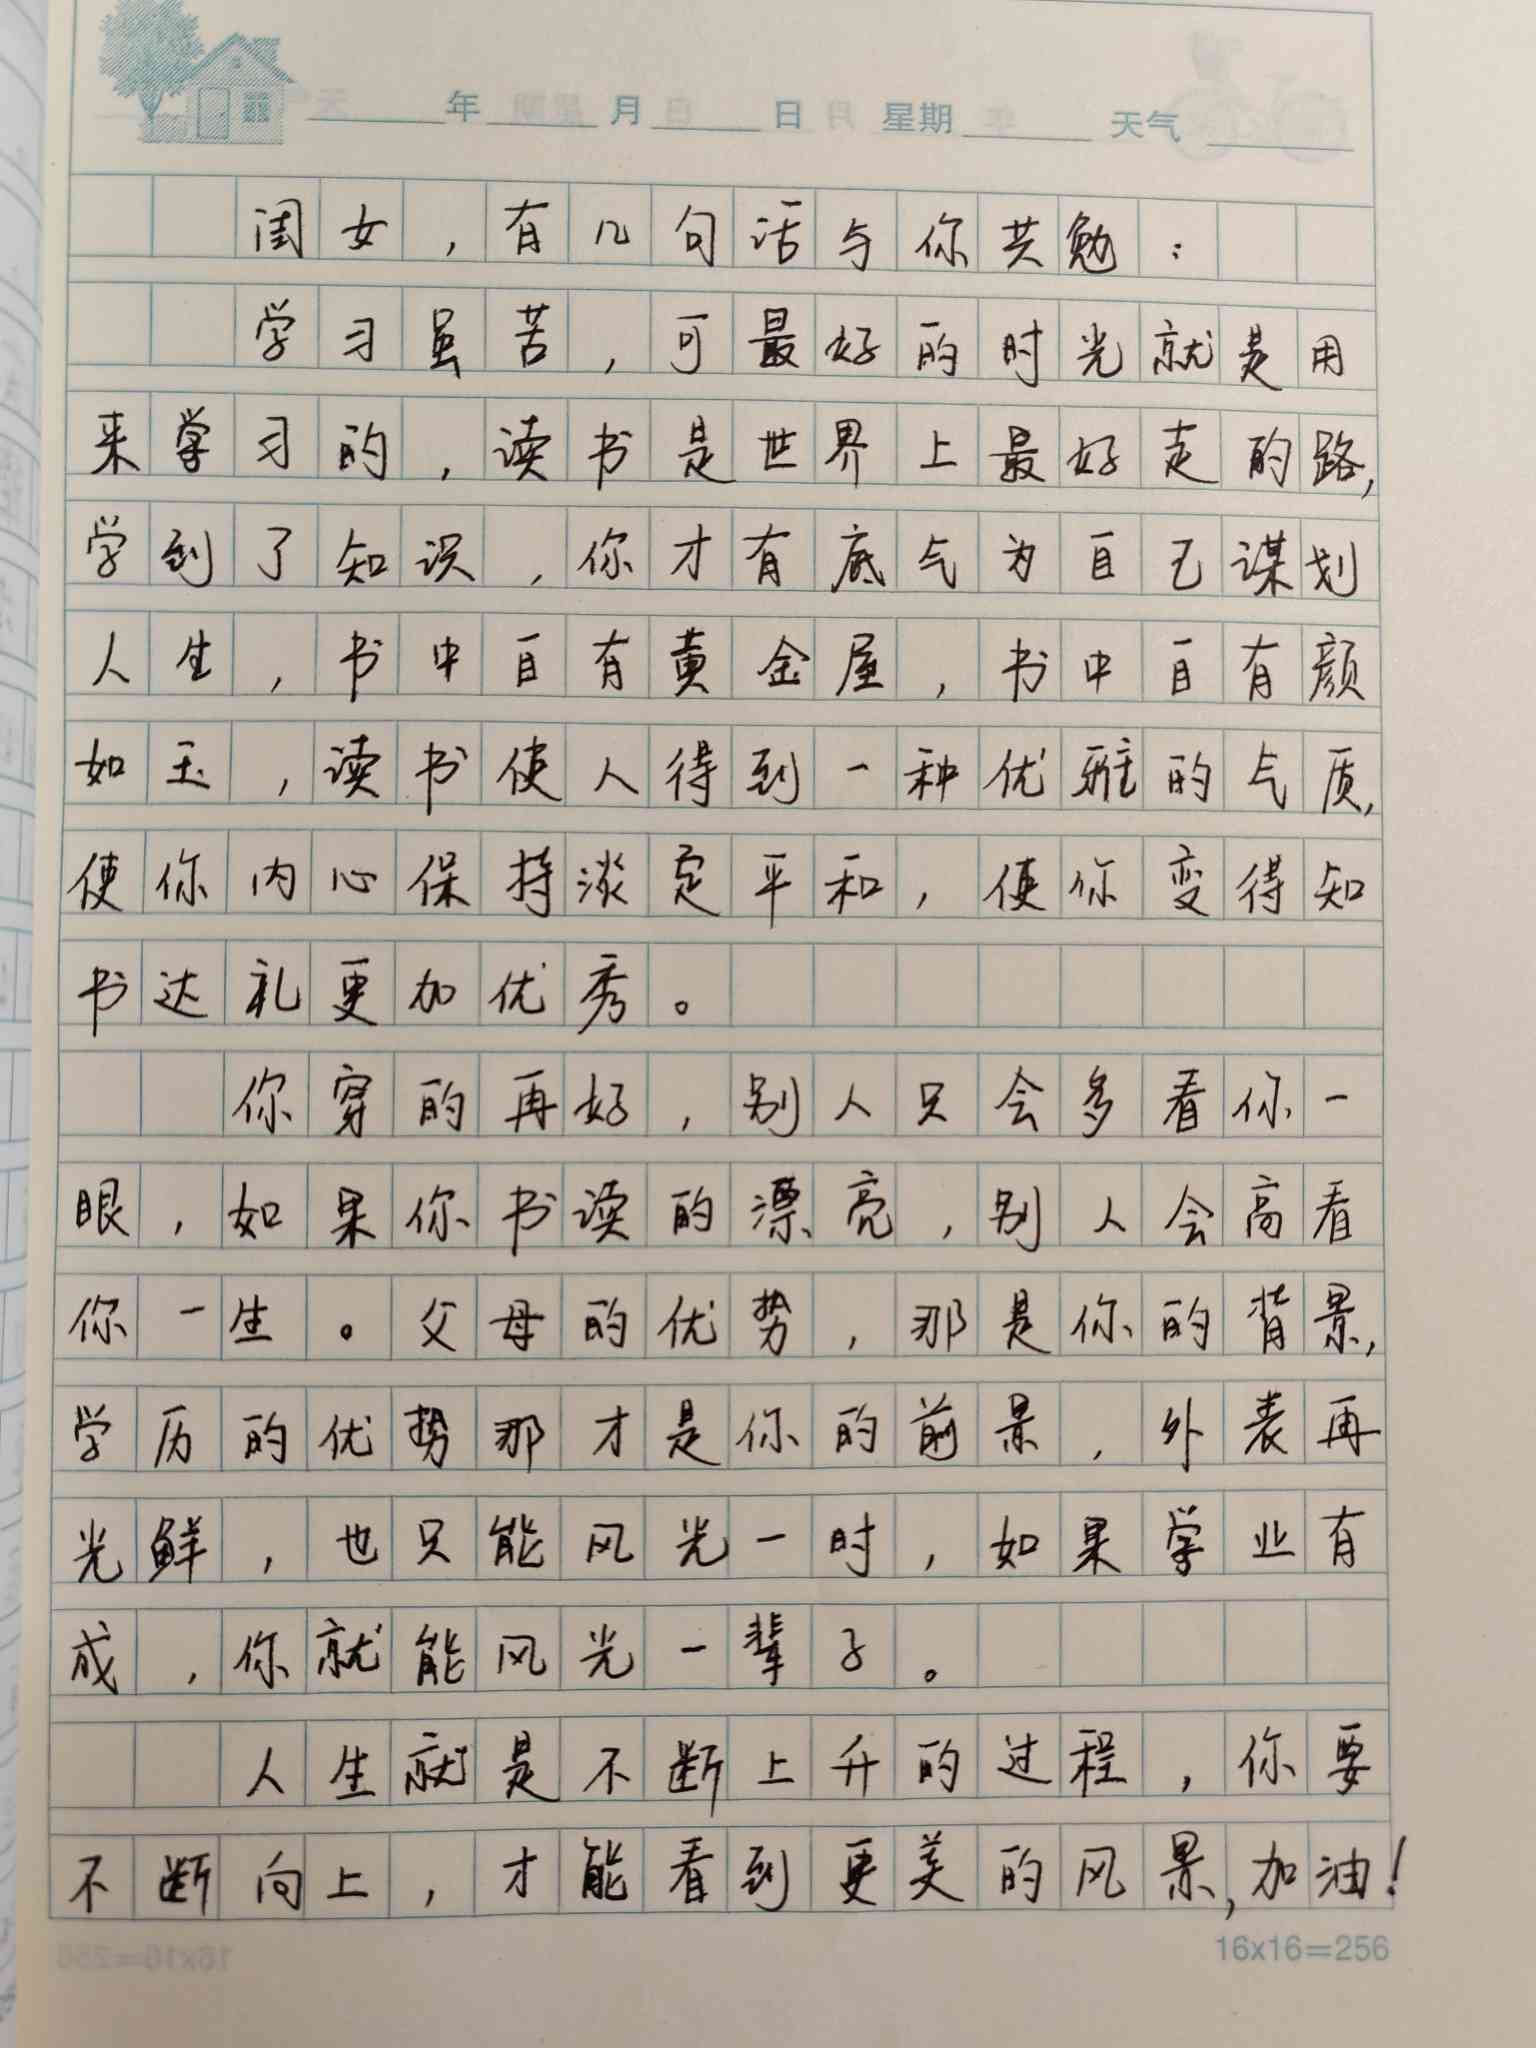 年 月 日 星期 天气
闺女，有几句话与你共勉：
学习虽苦，可最好的时光就是用
来学习的，读书是世界上最好走的路，
学到了知识，你才有底气为自己谋划
人生，书中自有黄金屋，书中自有颜
如玉，读书使人得到一种优雅的气质，
使你内心保持淡定平和，使你变得知
书达礼更加优秀。
你穿的再好，别人只会多看你一
眼，如果你书读的漂亮，别人会高看
你一生。父母的优势，那是你的背景，
学历的优势那才是你的前景，外表再
光鲜，也只能风光一时，如果学业有
成，你就能风光一辈子。
人生就是不断上升的过程，你要
不断向上，才能看到更美的风景，加油！
16x16=256